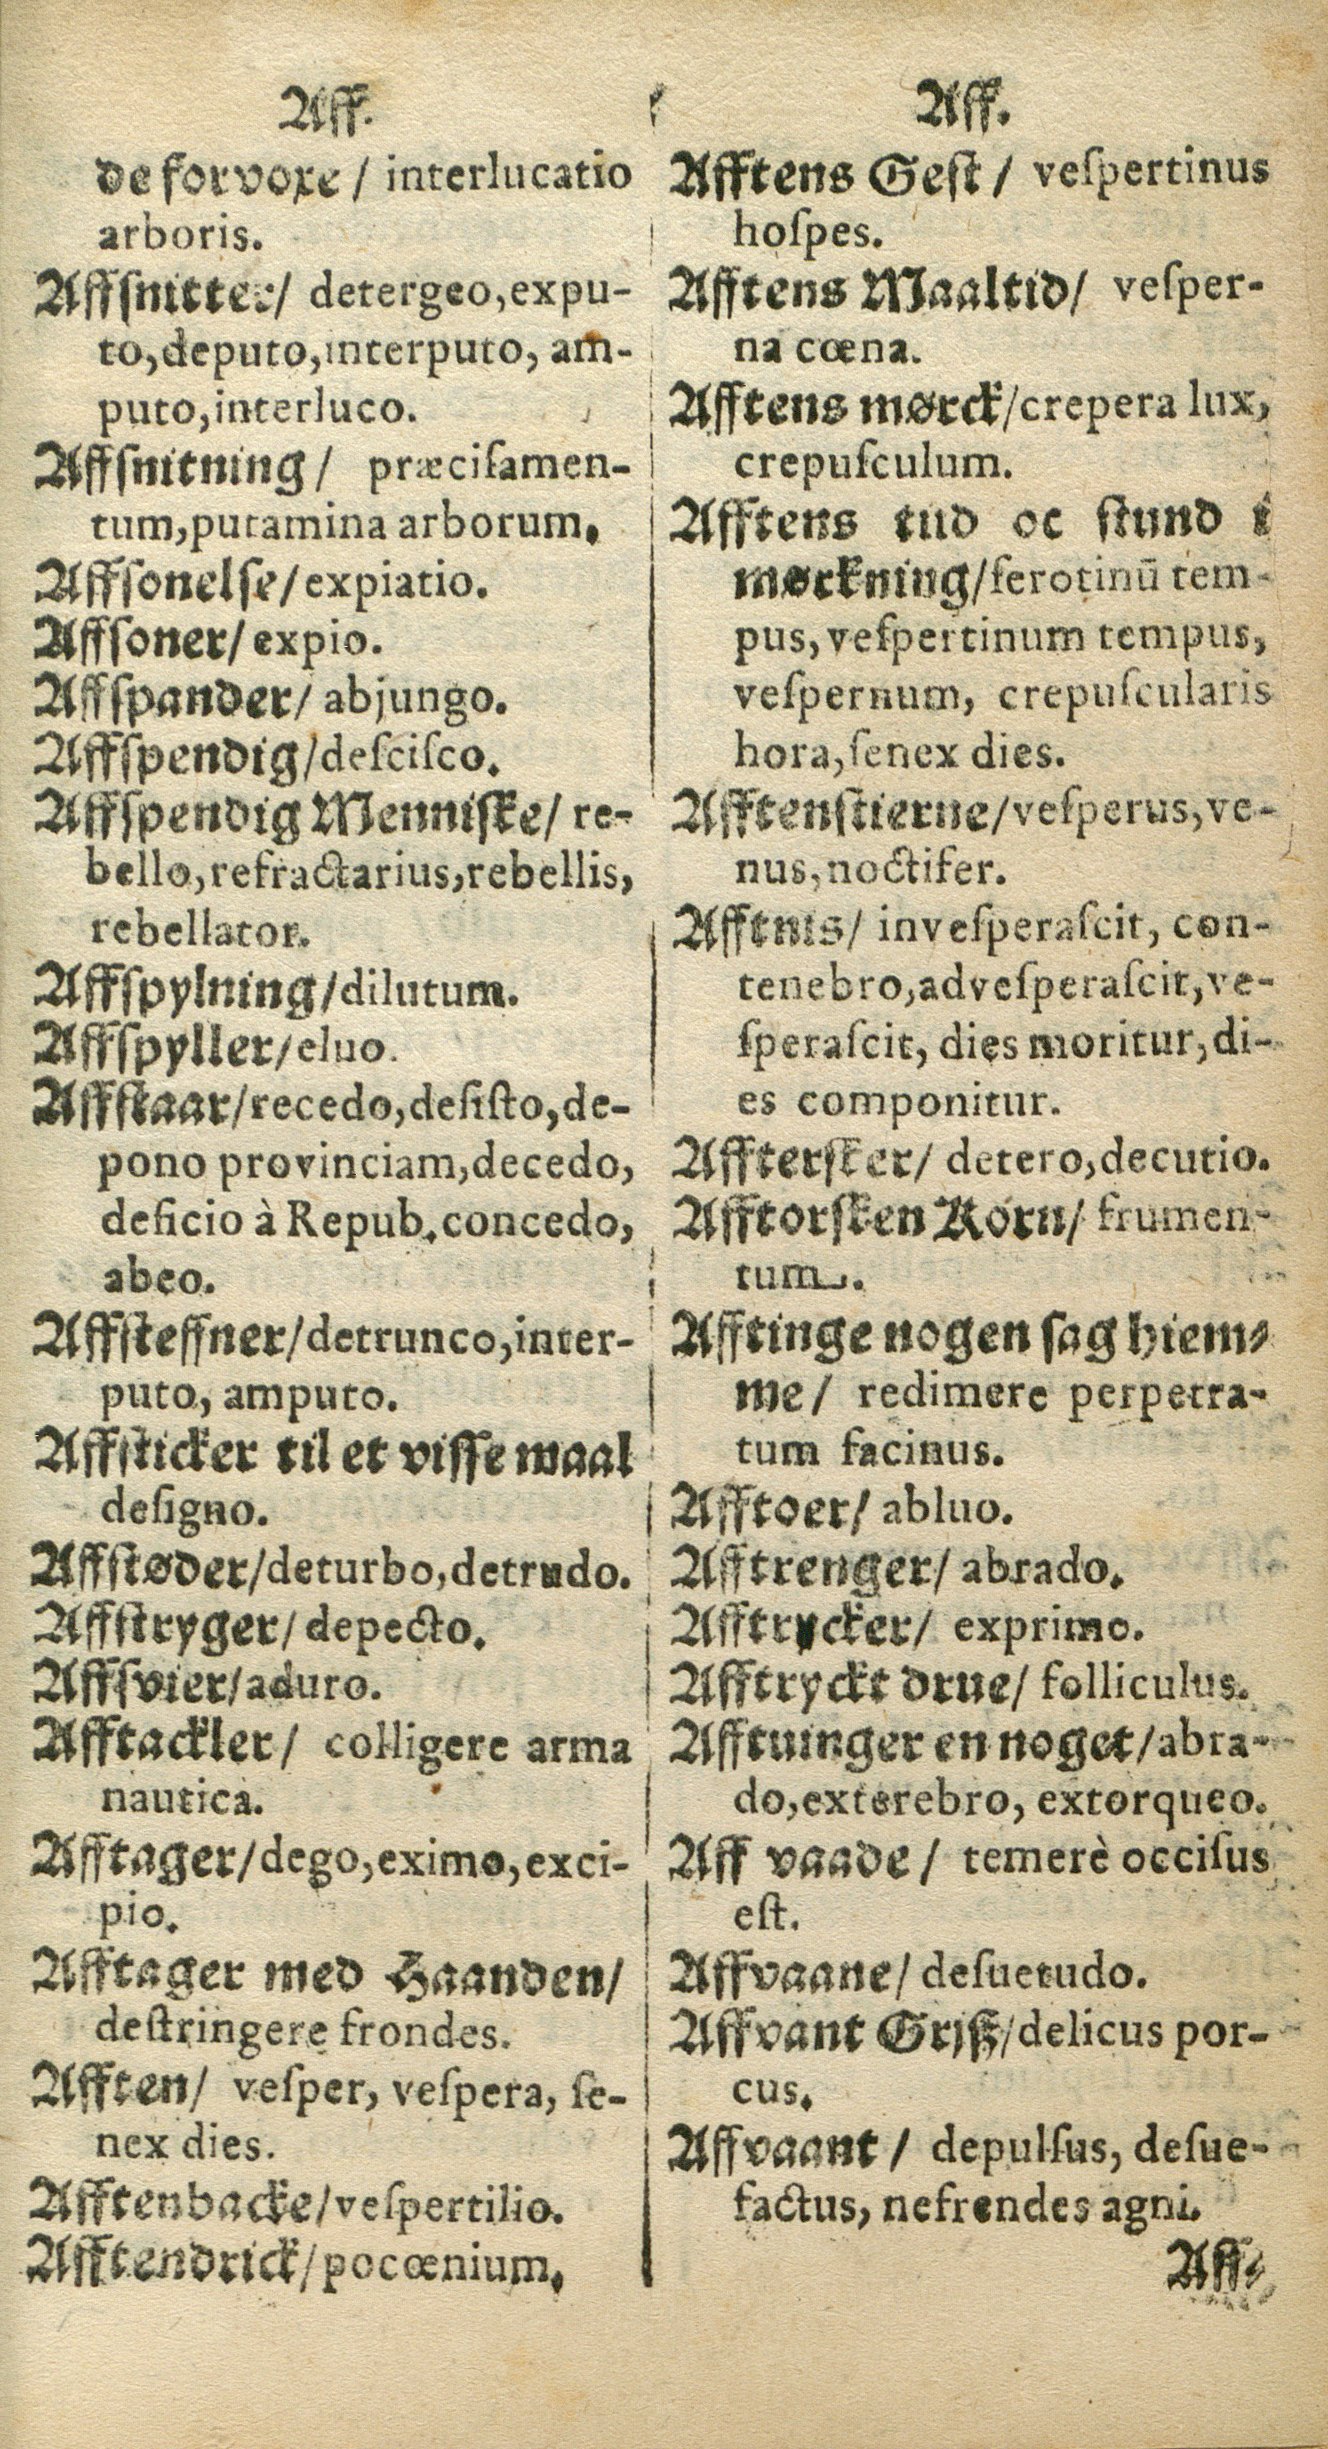 Aff.
de forvoxe / interlucatio
arboris.
Affsnitter/ detergeo, expu-
to, deputo, interputo, am-
puto, interluco.
Affsnitning / præciſamen-
tum, putamina arborum.
Affsonelse/ expiatio.
Affsoner/ expio.
Affspander/ abjungo.
Affspendig/ deſciſco.
Affspendig Menniske/ re-
bello, refractarius, rebellis,
rebellator.
Affspylning/ dilutum.
Affspyller/ eluo.
Affstaar/ recedo, deſiſto, de-
pono provinciam, decedo,
deficio à Repub. concedo,
abeo.
Affsteffner/ detrunco, inter-
puto, amputo.
Affsticker til et visse maal
deſigno.
Affstøder/ deturbo, detrudo.
Affstryger/ depecto.
Affsvier/ aduro.
Afftackler/ colligere arma
nautica.
Afftager/ dego, eximo, exci-
pio.
Afftager med Haanden/
deſtringere frondes.
Afften/ veſper, veſpera, ſe-
nex dies.
Afftenbacke/ veſpertilio.
Afftendrick/ pocœnium.
Aff.
Afftens Gest/ veſpertinus
hoſpes.
Afftens Maaltid/ veſper-
na cœna.
Afftens mørck/ crepera lux,
crepuſculum.
Afftens tud oc stund i
mørckning/ ſerotinū tem-
pus, veſpertinum tempus,
veſpernum, crepuſcularis
hora, ſenex dies.
Afftenstierne/ veſperus, ve-
nus, noctifer.
Afftnis/ inveſperaſcit, con-
tenebro, adveſperaſcit, ve-
ſperaſcit, dies moritur, di-
es componitur.
Afftersker/ detero, decutio.
Afftorsken Korn/ frumen-
tum.
Afftinge nogen sag hiem-
me/ redimere perpetra-
tum facinus.
Afftoer/ abluo.
Afftrenger/ abrado.
Afftrycker/ exprimo.
Afftryckt drue/ folliculus.
Afftuinger en noget/ abra-
do, exterebro, extorqueo.
Aff vaade/ temerè occiſus
eſt.
Affvaane/ deſuetudo.
Affvant Grjß/ delicus por-
cus.
Affvaant/ depulſus, deſue-
factus, nefrendes agni.
Aff-